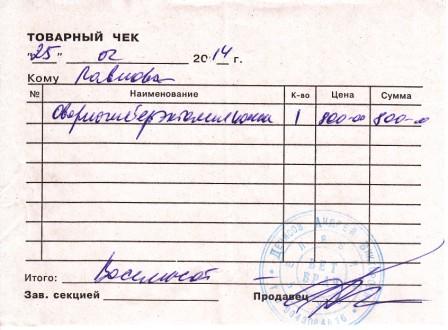 ТОВАРНЫЙ ЧЕК
"25" 02 2014 г.
Кому Павлова
№ Наименование К-во Цена Сумма
1 800-00 800-00
ВЕТ
ВРАЧ
Итого: Восемьсот
Зав. секцией Продавец